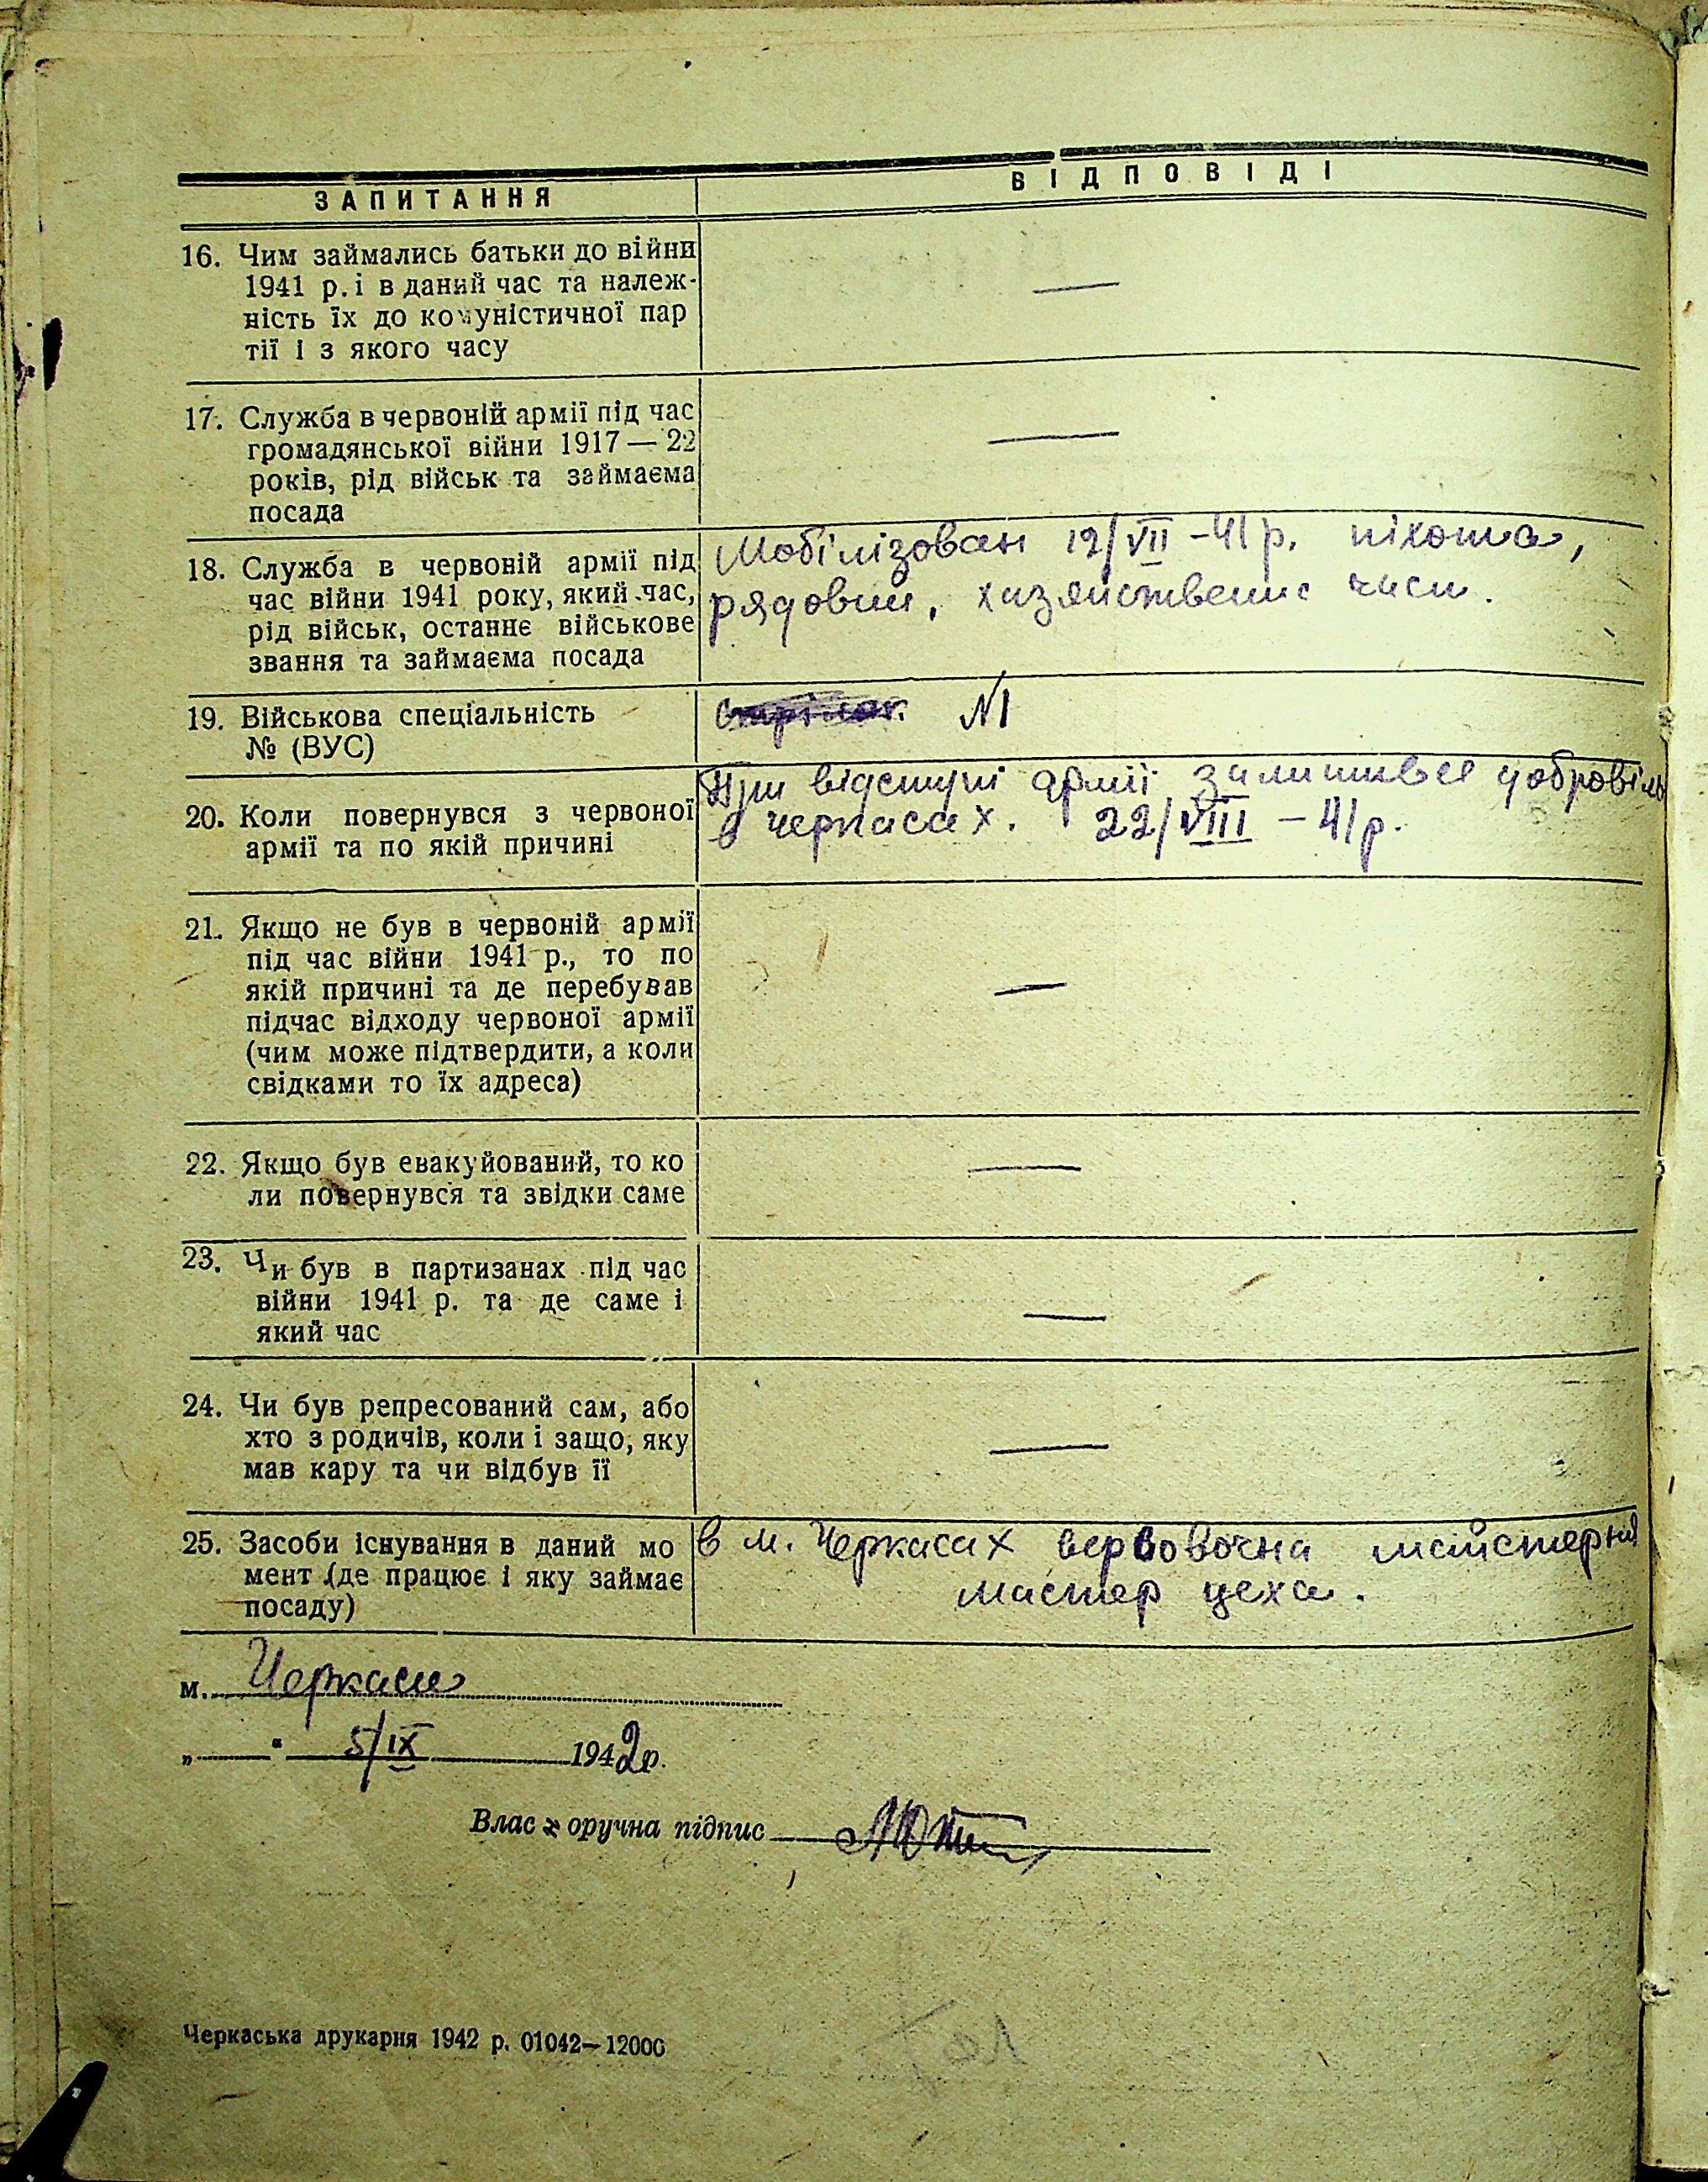 ЗАПИТАННЯ
ВІДПОВІДІ
16. Чим займались батьки до війни
1941 р. і в даний час та належ-
ність їх до комуністичної пар
тії і з якого часу
—
17. Служба в червоній армії під час
громадянської війни 1917 — 22
років, рід військ та займаєма
посада
—
18. Служба в червоній армії під
час війни 1941 року, який час,
рід військ, останнє військове
звання та займаєма посада
Мобілізован 12/VII - 41 р. піхота,
рядовий, хазяйственна части.
19. Військова спеціальність
№ (ВУС)
стрілок N1
20. Коли повернувся з червоної
армії та по якій причині
При відступі армії залишився добровіль
в черкасах. 22/VIII - 41 р.
21. Якщо не був в червоній армії
під час війни 1941 р., то по
якій причині та де перебував
підчас відходу червоної армії
(чим може підтвердити, а коли
свідками то їх адреса)
—
22. Якщо був евакуйований, то ко
ли повернувся та звідки саме
—
23. Чи був в партизанах під час
війни 1941 р. та де саме і
який час
—
24. Чи був репресований сам, або
хто з родичів, коли і защо, яку
мав кару та чи відбув її
—
25. Засоби існування в даний мо
мент (де працює і яку займає
посаду)
в м. Черкасах верёвочна майстерня
мастер цеха.
м. Черкаси
„ “ 5/IX 1942 р.
Власноручна підпис
Черкаська друкарня 1942 р. 01042—12000